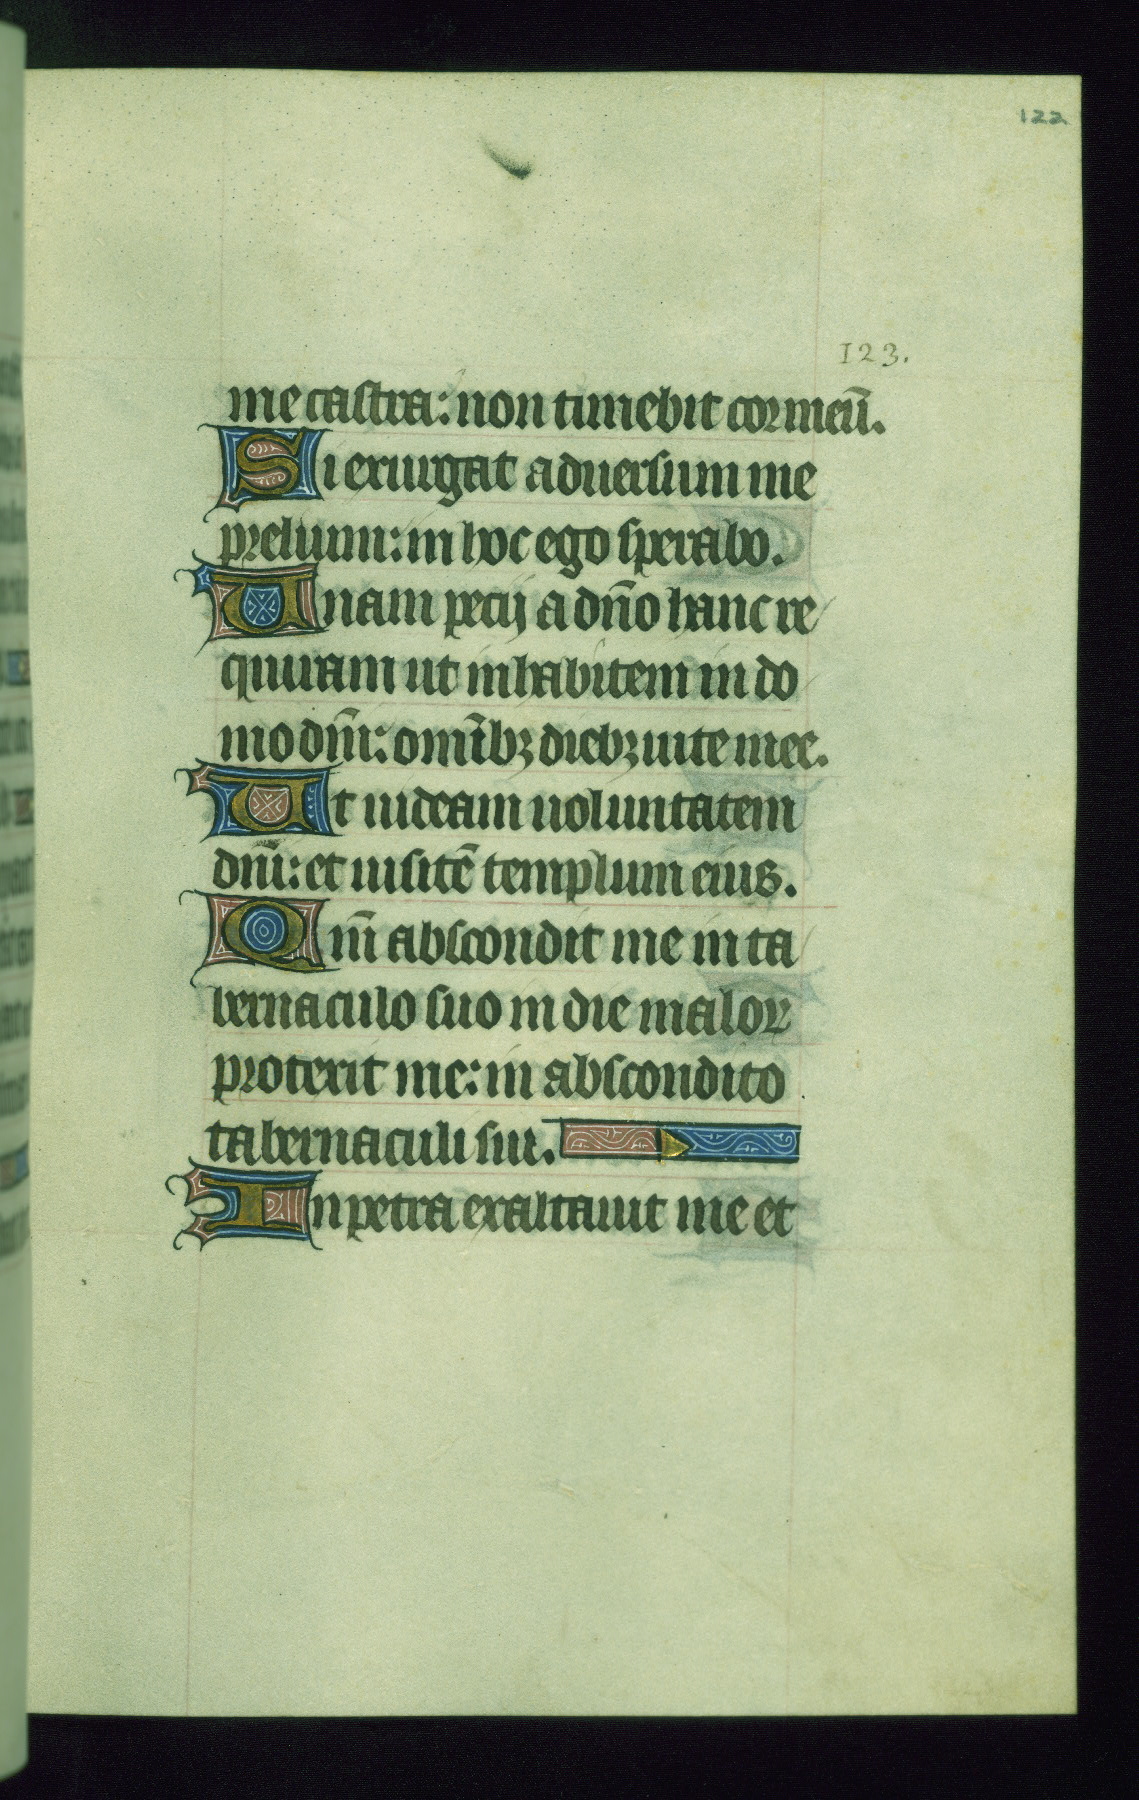 122
123.
me castra: non timebit cor meū.
Si exurgat aduersum me
prelium: in hoc ego sperabo.
Unam pecij a dn̄o hanc re
quiram ut inhabitem in do
mo dn̄i: omībꝫ diebꝫ uite mee.
Ut uideam uoluntatem
dn̄i: et uisitē templum eius.
Qm̄ abscondit me in ta
bernaculo suo in die maloꝝ
protexit me: in abscondito
tabernaculi sui.
In petra exaltauit me et